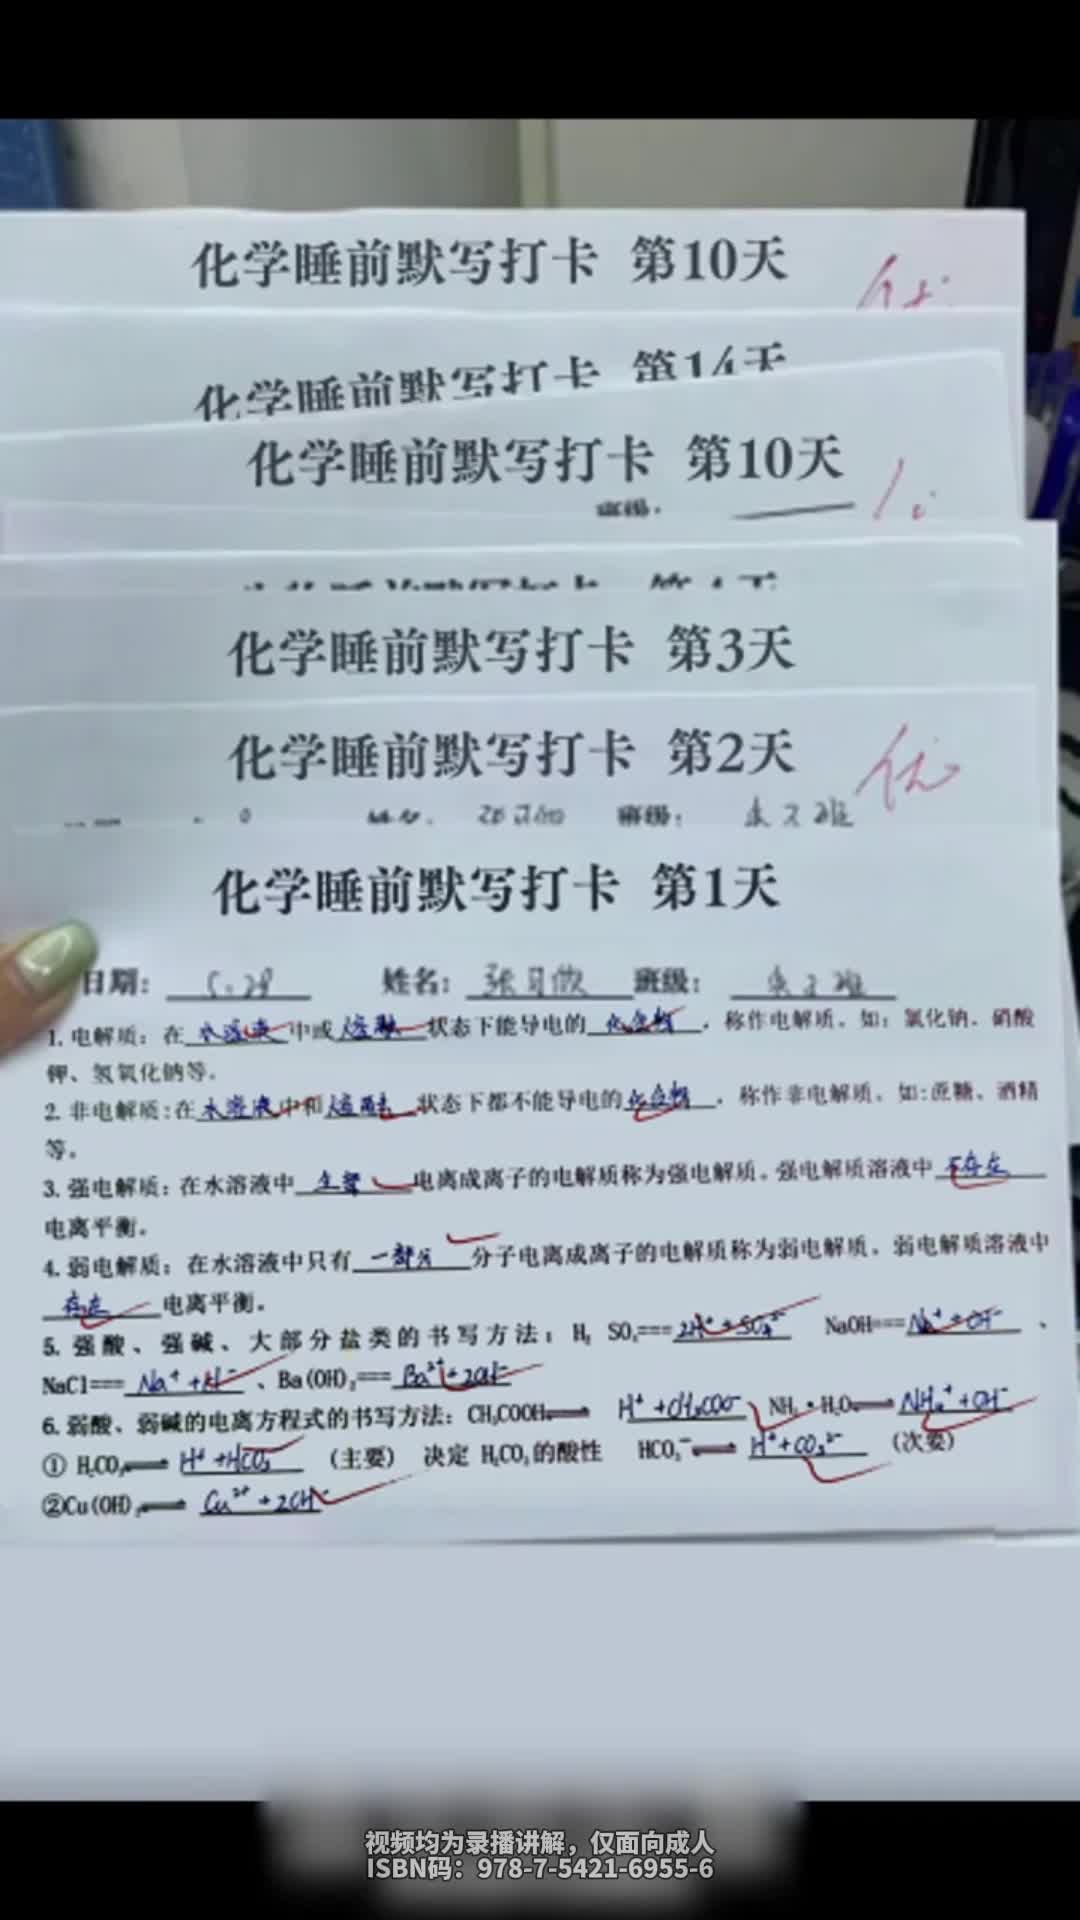 化学睡前默写打卡 第10天
优
化学睡前默写打卡 第14天
化学睡前默写打卡 第10天
班级:
化学睡前默写打卡 第3天
化学睡前默写打卡 第2天
优
班级:
化学睡前默写打卡 第1天
日期: 5.29 姓名: 班级:
1.电解质: 在水溶液中或熔融状态下能导电的化合物, 称作电解质。如: 氯化钠、硝酸
钾、氢氧化钠等。
2.非电解质:在水溶液中和熔融状态下都不能导电的化合物, 称作非电解质。如:蔗糖、酒精
等。
3.强电解质: 在水溶液中全部电离成离子的电解质称为强电解质。强电解质溶液中不存在
电离平衡。
4.弱电解质: 在水溶液中只有一部分分子电离成离子的电解质称为弱电解质。弱电解质溶液中
存在电离平衡。
5.强酸、强碱、大部分盐类的书写方法: H₂ SO₄===2H⁺+SO₄²⁻ NaOH===Na⁺+OH⁻、
NaCl===Na⁺+Cl⁻、Ba(OH)₂===Ba²⁺+2OH⁻
6.弱酸、弱碱的电离方程式的书写方法: CH₃COOH⇌H⁺+CH₃COO⁻ NH₃·H₂O⇌NH₄⁺+OH⁻
①H₂CO₃⇌H⁺+HCO₃⁻ (主要) 决定 H₂CO₃的酸性 HCO₃⁻⇌H⁺+CO₃²⁻ (次要)
②Cu(OH)₂⇌Cu²⁺+2OH⁻
视频均为录播讲解，仅面向成人
ISBN码：978-7-5421-6955-6